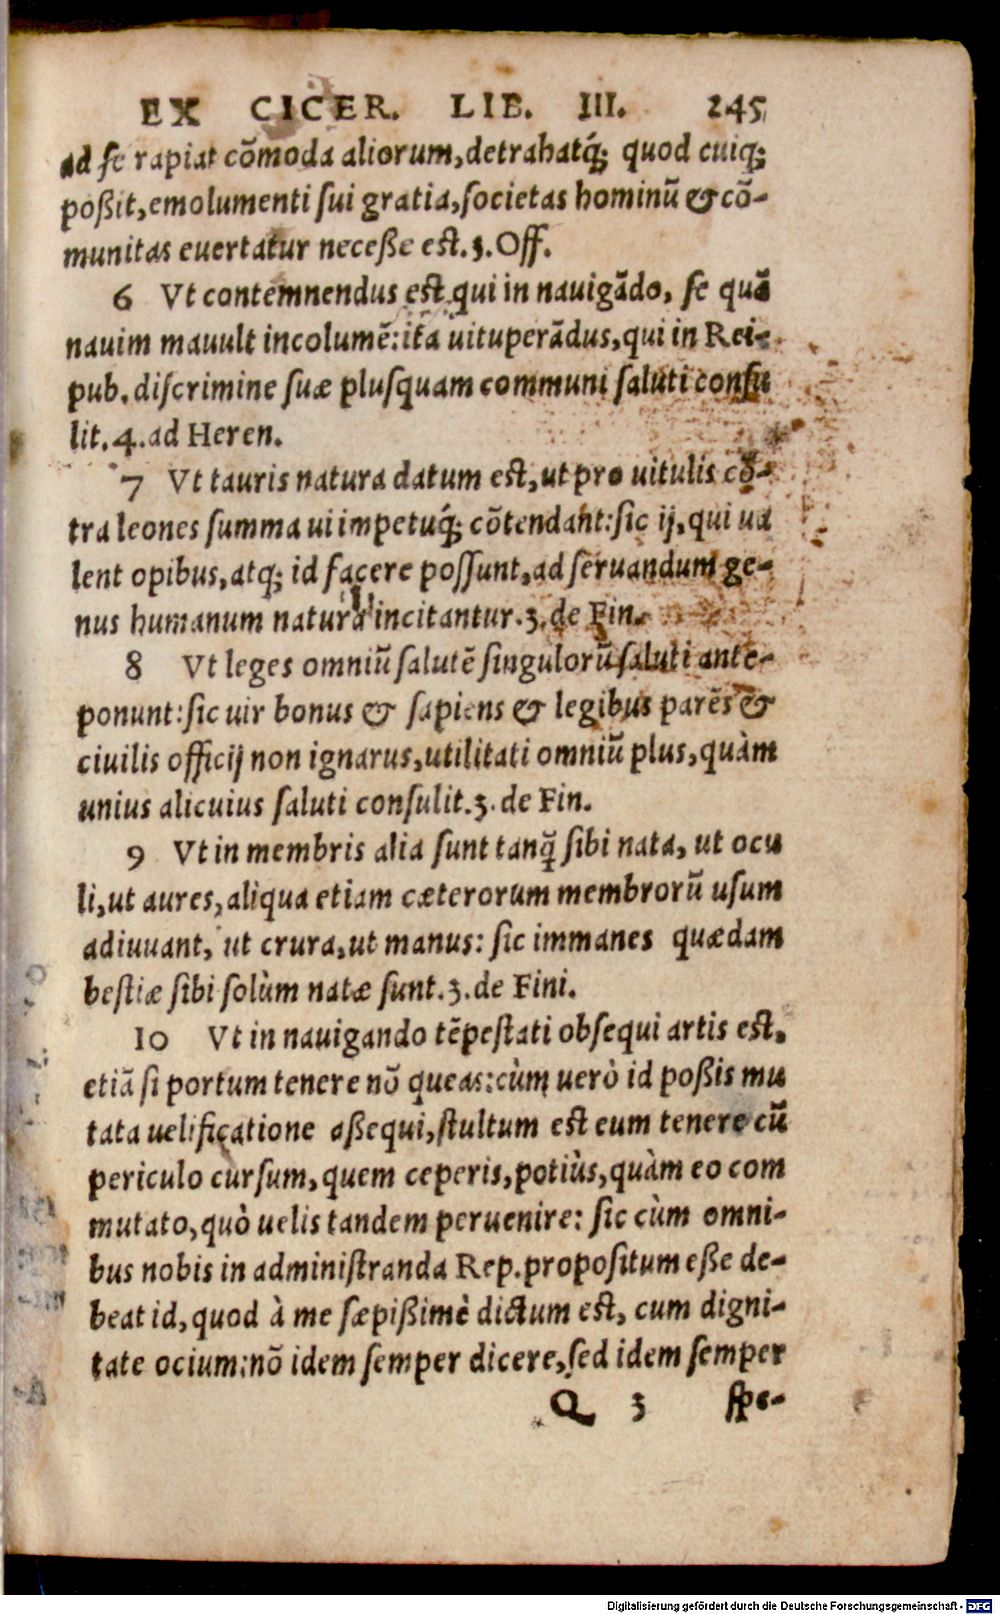 EX CICER. LIB. III. 245
ad se rapiat cõmoda aliorum, detrahatq́; quod cuiq;
poßit, emolumenti sui gratia, societas hominũ & cõ-
munitas euertatur neceße est. 3. Off.
6 Vt contemnendus est, qui in nauigãdo, se quã
nauim mauult incolumẽ: ita uituperãdus, qui in Rei-
pub. discrimine suæ plusquam communi saluti consu
lit. 4. ad Heren.
7 Vt tauris natura datum est, ut pro uitulis cõ-
tra leones summa ui impetuq́; cõtendant: sic ij, qui ua
lent opibus, atq; id facere possunt, ad seruandum ge-
nus humanum natura incitantur. 3. de Fin.
8 Vt leges omniũ salutẽ singulorũ saluti ante-
ponunt: sic uir bonus & sapiens & legibus parẽs &
ciuilis officij non ignarus, utilitati omniũ plus, quàm
unius alicuius saluti consulit. 3. de Fin.
9 Vt in membris alia sunt tanq̃ sibi nata, ut ocu
li, ut aures, aliqua etiam cæterorum membrorũ usum
adiuuant, ut crura, ut manus: sic immanes quædam
bestiæ sibi solùm natæ sunt. 3. de Fini.
10 Vt in nauigando tẽpestati obsequi artis est,
etiã si portum tenere nõ queas: cùm uerò id poßis mu
tata uelificatione aßequi, stultum est eum tenere cũ
periculo cursum, quem ceperis, potiùs, quàm eo com
mutato, quò uelis tandem peruenire: sic cùm omni-
bus nobis in administranda Rep. propositum eße de-
beat id, quod à me sæpißimè dictum est, cum digni-
tate ocium: nõ idem semper dicere, sed idem semper
Q 3 spe-
Digitalisierung gefördert durch die Deutsche Forschungsgemeinschaft - DFG